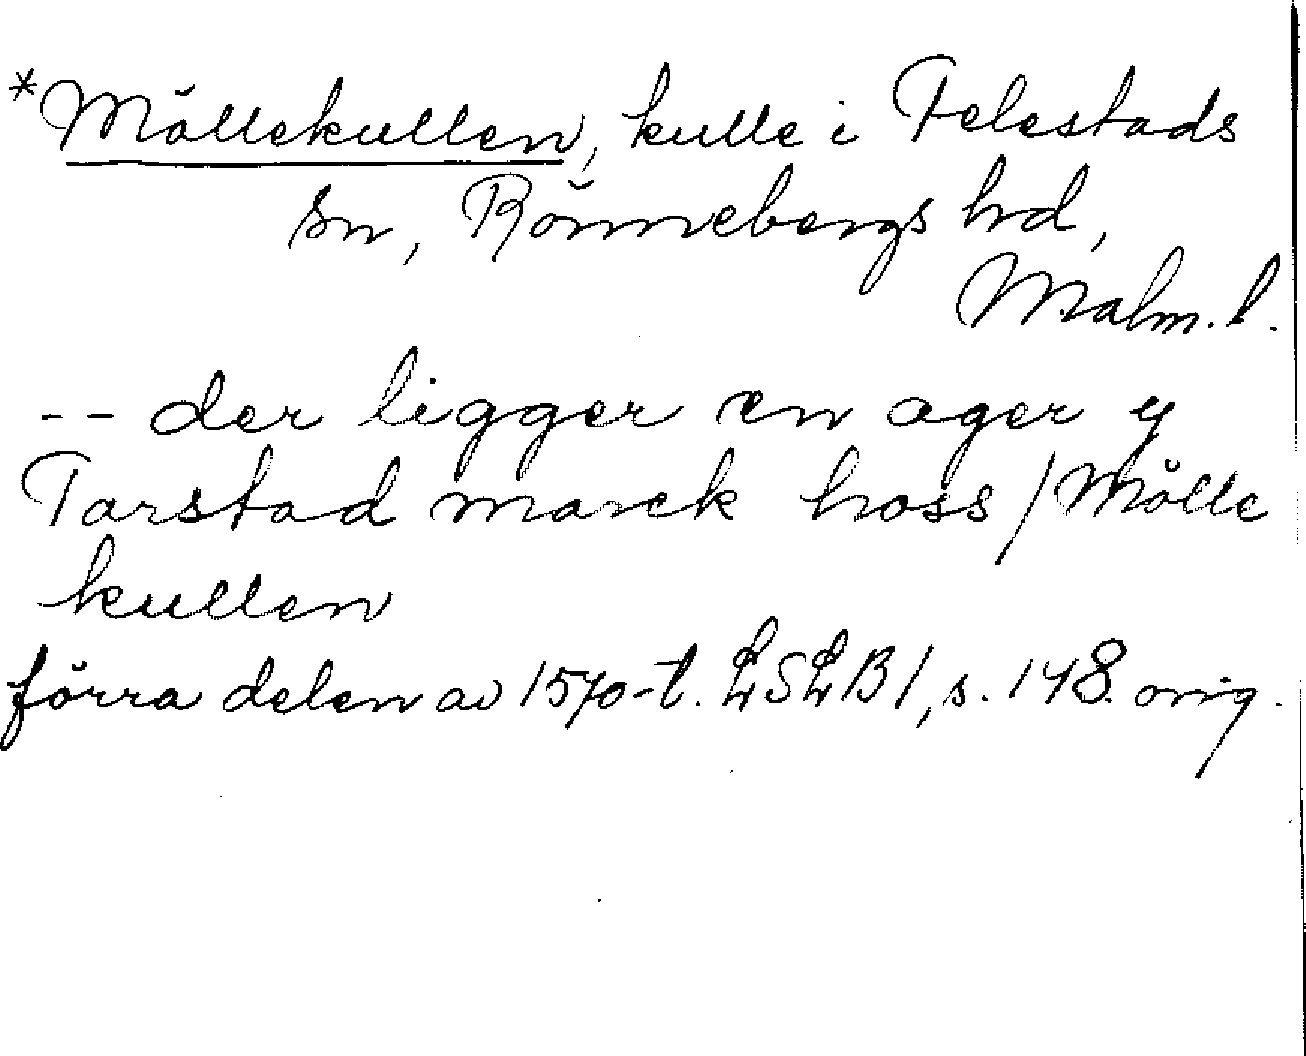 *Möllekullen, kulle i Felestads
sn, Rönnebergs hrd,
Malm. l.
-- der ligger en ager y
Tarstad marck hoss / Mölle
kullen
förra delen av 1570-t. LSLB 1, s. 148. orig.